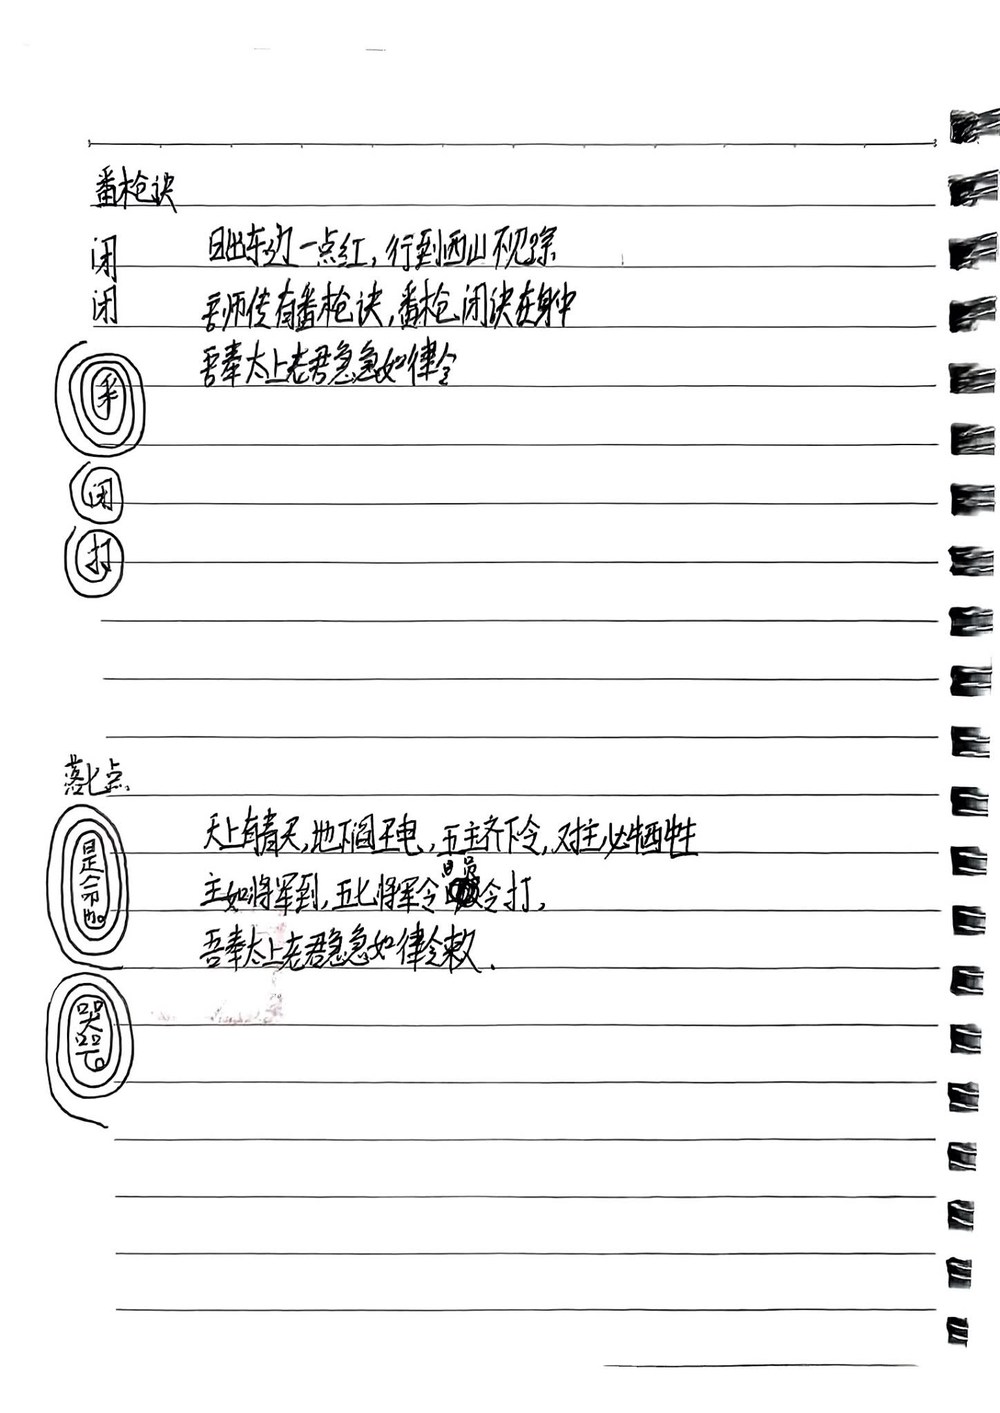 番枪诀
闭
日出东边一点红，行到西山不见踪
闭
吾师传有番枪诀，番枪闭诀在身中
吾奉太上老君急急如律令
闭
打
落七点.
天上有青天，地下阎王电，五主齐下令，对主必牺牲
是命
主如将军到，五七将军令令打，
吾奉太上老君急急如律令敕.
哭